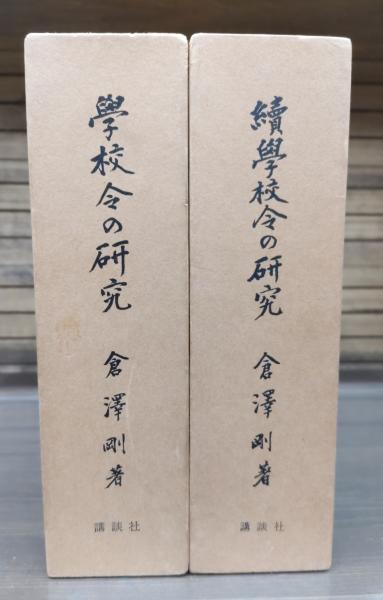 學校令の研究
倉澤剛著
講談社
續學校令の研究
倉澤剛著
講談社